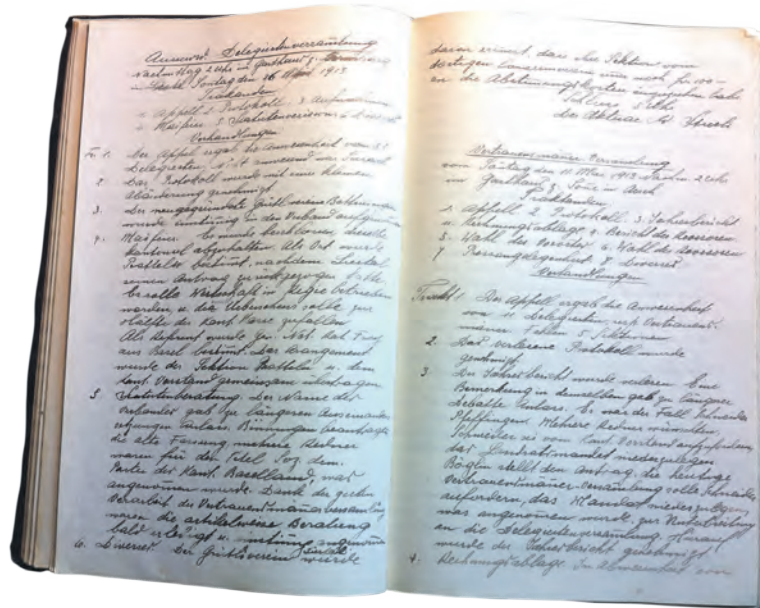 Ausserord. Delegiertenversammlung
nachmittag 2 Uhr im Gasthaus z.
in Liestal Sontag den 16 März 1913
Traktanden
1. Appell 2. Protokoll. 3. Aufnahmen
4. Maifeier. 5. Statutenrevision 6.
Verhandlungen
Tr. 1. Der Appell ergab die Anwesenheit von
Delegierten, nicht anwesend war
2. Das Protokoll wurde mit einer kleinen
Abänderung genehmigt.
3. Der neugegründete Grütliverein Bottmingen
wurde einstimig in den Verband aufgenommen
4. Maifeier. Es wurde beschlossen, dieselbe
kantonal abzuhalten. Als Ort wurde
Pratteln bestimt, nachdem Liestal
seinen Antrag zurückgezogen hatte.
Es solle Wirtschaft in Regie betrieben
werden u. der Ueberschuss solle zur
Hälfte der Kant. Kasse zufallen
Als Referent wurde Gen. Nat. Rat Frey
aus Basel bestimt. Das Arangement
wurde der Sektion Pratteln u. dem
Kant. Vorstand gemeinsam übertragen
5. Statutenberatung. Der Name des
Verbandes gab zu längeren Auseinander
setzungen Anlass. Binningen beantragte
die alte Fassung, mehrere Redner
waren für den Titel Soz. dem.
Partei des Kant. Baselland, was
angenomen wurde. Dank der guten
Vorarbeit der Vertrauensmänerversamlung
waren die artikelweise Beratung
bald erledigt u. einstimig angenomen
6. Diverses. Der Grütliverein Liestal wurde
daran erinert, dass ihre Sektion vom
dortigen Consumverein nur noch fr. 100 –
an die Abstimungskosten
Schluss 5 Uhr
Der Aktuar
Vertrauensmäner Versamlung
vom Sontag den 11. Mai 1913 Nachm. 2 Uhr
im Gasthaus z. Sone in Aesch
Traktanden
1. Appell 2. Protokoll. 3. Jahresbericht
4. Rechnungsablage 4. Bericht der Revisoren
5. Wahl des Vorortes 6. Wahl der Revisoren
7. Pressangelegenheit. 8. Diverses
Verhandlungen
Trakt 1. Der Appell ergab die Anwesenheit
von 11 Delegierten, resp. Vertrauens
mäner. Fehlen 5 Sektionen
2. Das verlesene Protokoll wurde
genehmigt
3. Der Jahresbericht wurde verlesen. Eine
Bemerkung in demselben gab zu längerer
Debatte Anlass. Es war der Fall Schneider
Pfeffingen. Mehrere Redner wünschten
Schneider sei vom Kant. Vorstand aufzufordern
das Landratsmandat niederzulegen
Böglin stellt den Antrag, die heutige
Vertrauensmäner-Versamlung solle Schneider
auffordern, das Mandat niederzulegen,
was angenomen wurde, zur
an die Delegiertenversamlung. Hierauf
wurde der Jahresbericht genehmigt.
4. Rechnungsablage. In Abwesenheit von